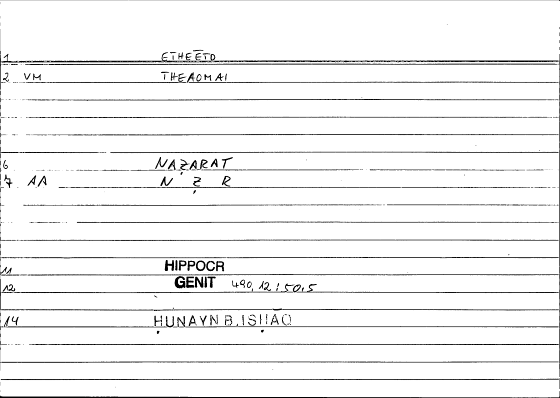 1 ETHEĒTO
2 VM THEAOMAI
6 NAẒARAT
7 AA N Ẓ R
11 HIPPOCR
12 GENIT 490,12;50,5
14 ḤUNAYN B.ISḤĀQ